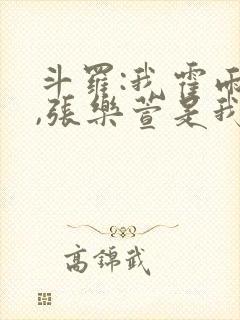 斗羅:我霍雨
,張樂萱是我
高錦武